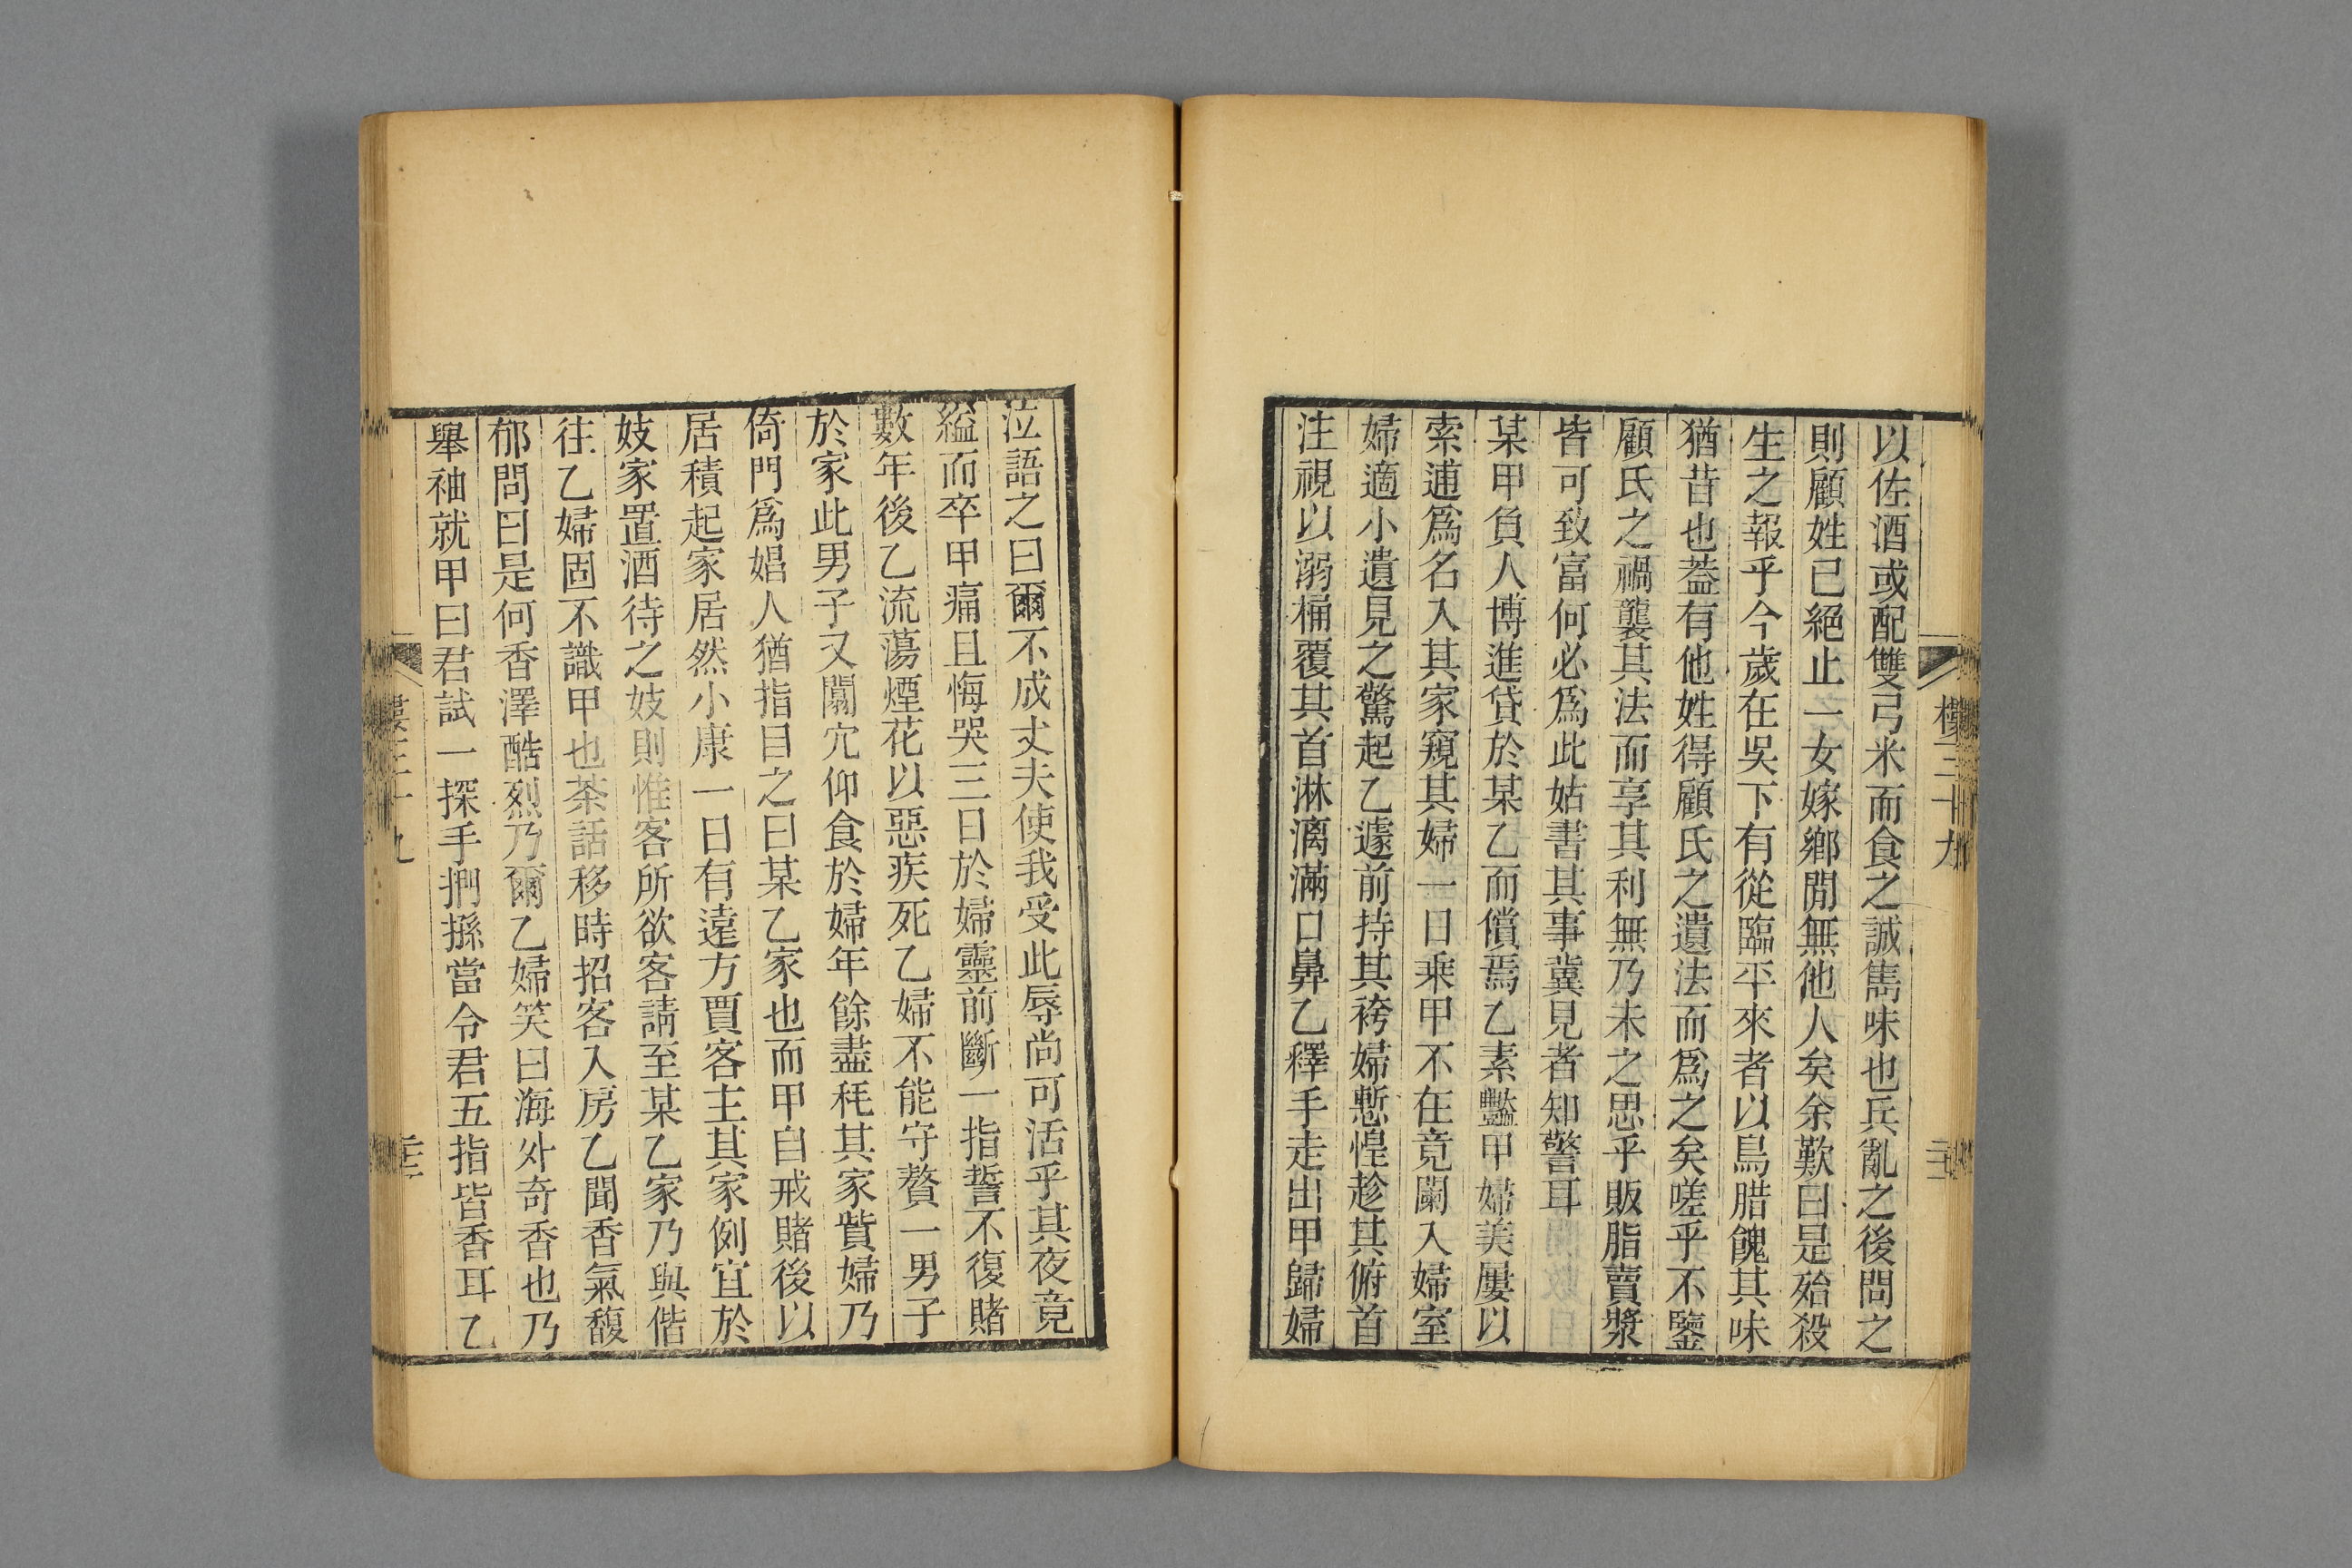 以佐酒或配雙弓米而食之誠雋味也兵亂之後問之
則顧姓已絕止一女嫁鄉閒無他人矣余歎曰是殆殺
生之報乎今歲在吳下有從臨平來者以鳥腊餽其味
猶昔也葢有他姓得顧氏之遺法而爲之矣嗟乎不鑒
顧氏之禍襲其法而享其利無乃未之思乎販脂賣漿
皆可致富何必爲此姑書其事冀見者知警耳
某甲負人博進貸於某乙而償焉乙素豔甲婦美屢以
索逋爲名入其家窺其婦一日乗甲不在竟闌入婦室
婦適小遺見之驚起乙遽前持其袴婦慙惶趁其俯首
注視以溺桶覆其首淋漓滿口鼻乙釋手走出甲歸婦
泣語之曰爾不成丈夫使我受此辱尚可活乎其夜竟
縊而卒甲痛且悔哭三日於婦靈前斷一指誓不復賭
數年後乙流蕩煙花以惡疾死乙婦不能守贅一男子
於家此男子又闒宂仰食於婦年餘盡秏其家貲婦乃
倚門爲娼人猶指目之曰某乙家也而甲自戒賭後以
居積起家居然小康一日有遠方賈客主其家例宜於
妓家置酒待之妓則惟客所欲客請至某乙家乃與偕
往乙婦固不識甲也茶話移時招客入房乙聞香氣馥
郁問曰是何香澤酷烈乃爾乙婦笑曰海外奇香也乃
舉袖就甲曰君試一探手捫搎當令君五指皆香耳乙